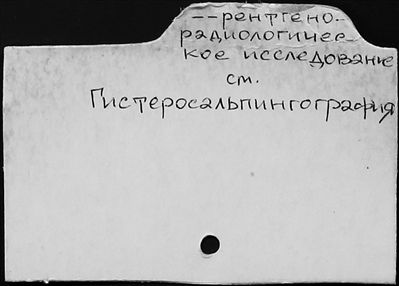 --рентгено-
радиологичес-
кое исследование
см.
Гистеросальпингография